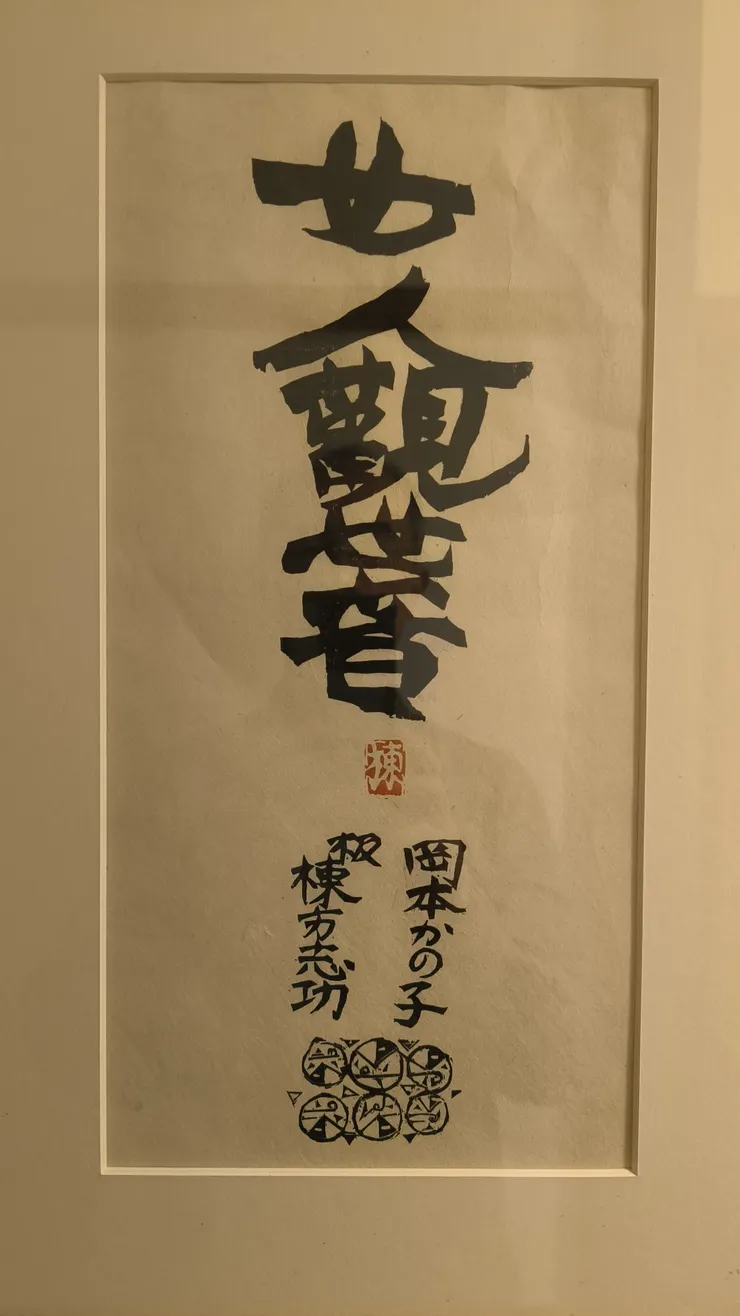 女人觀世音
棟
岡本かの子
板
棟方志功